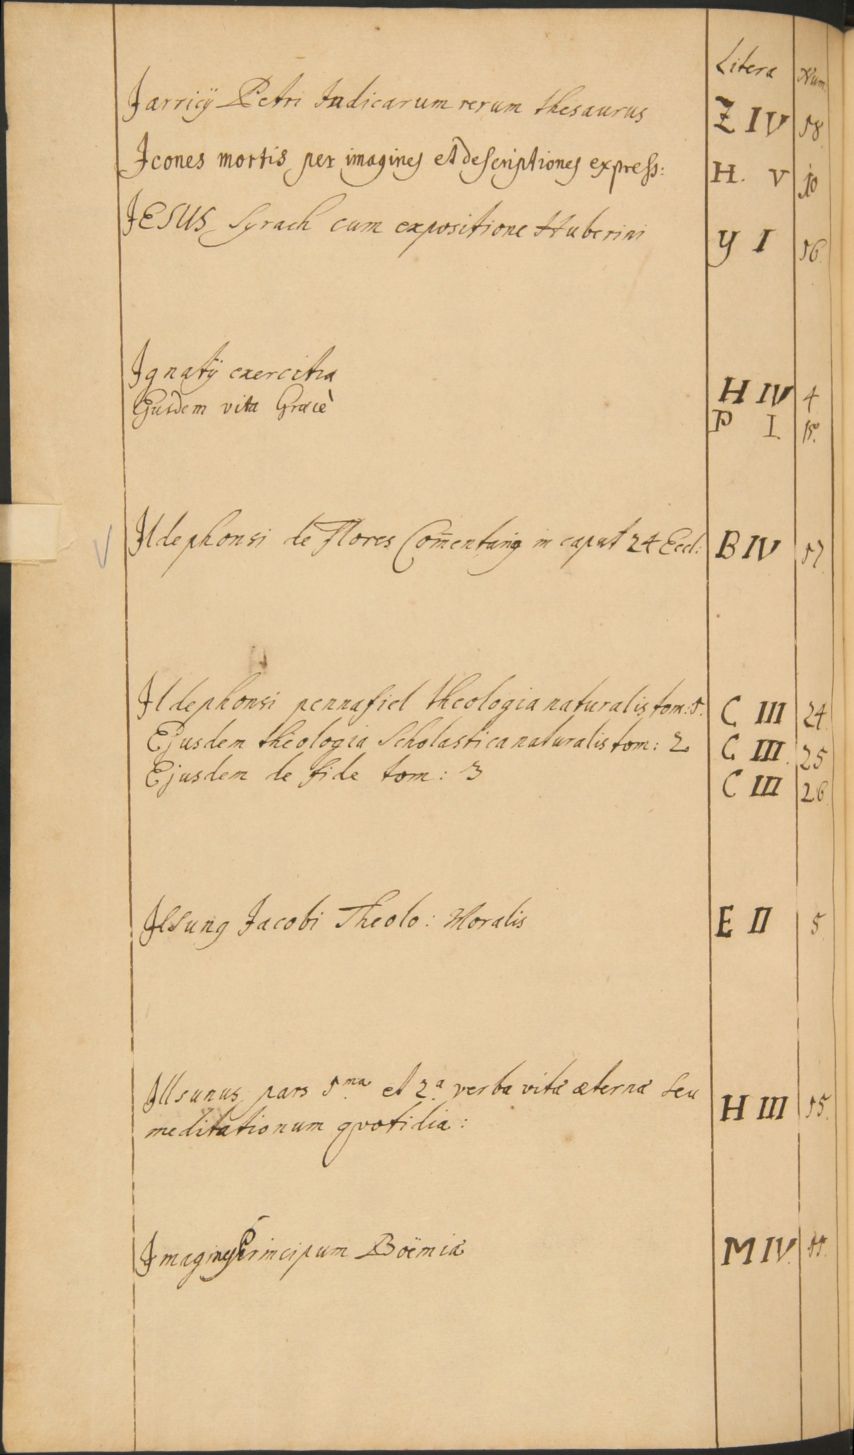 Litera Num
Jarricÿ Petri Indicarum rerum thesaurus Z IV 18.
Icones mortis per imagines et descriptiones express: H. V 10
JESUS Syrach cum expositione Huberini Y I 16.
Ignatÿ exercitia H IV 4
Ejusdem vita Græcè P I.
Ildephonsi de Flores Com̄entariꝯ in caput 24 Eccl: B IV 17.
Ildephonsi pennafiel theologia naturalis tom: 1. C III 24.
Ejusdem theologia Scholastica naturalis tom: 2 C III. 25
Ejusdem de fide tom: 3 C III 26.
Ilsung Jacobi Theolo: Moralis E II 5
Illsunus pars 1.ma et 2.a verba vitæ æternæ seu H III 15.
meditationum qvotidia:
Imagines Principum Boëmiæ M IV. 11.